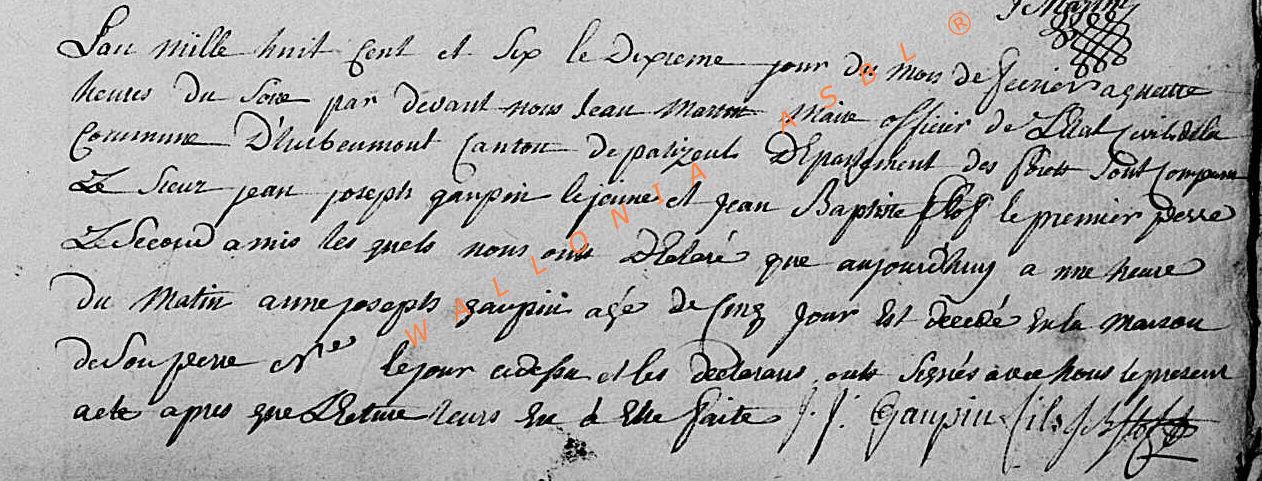 J Martin
L'an mille huit Cent et Six le Dixieme jour du mois de fevrier a quattre
heures du Soire par devant nous Jean Martin Maire officier de L'Etat Civil de la
Commune D'herbeumont Canton de palizeul DEpartement des forets Sont Comparu
Le Sieur jean joseph gaupin le jeune et Jean Baptiste Stos le premier perre
Le Second amis les quels nous onts DEclaré que aujourd'huy a une heure
du Matin anne joseph gaupin agé de Cinq jour Est décédé En la Maison
de Son perre Ne le jour cidessu et les declarans onts Signés avec Nous le present
acte apres que LEcture leurs En à Ette faite J: J: Gaupin fils J B Stos
WALLONIA ASBL ®